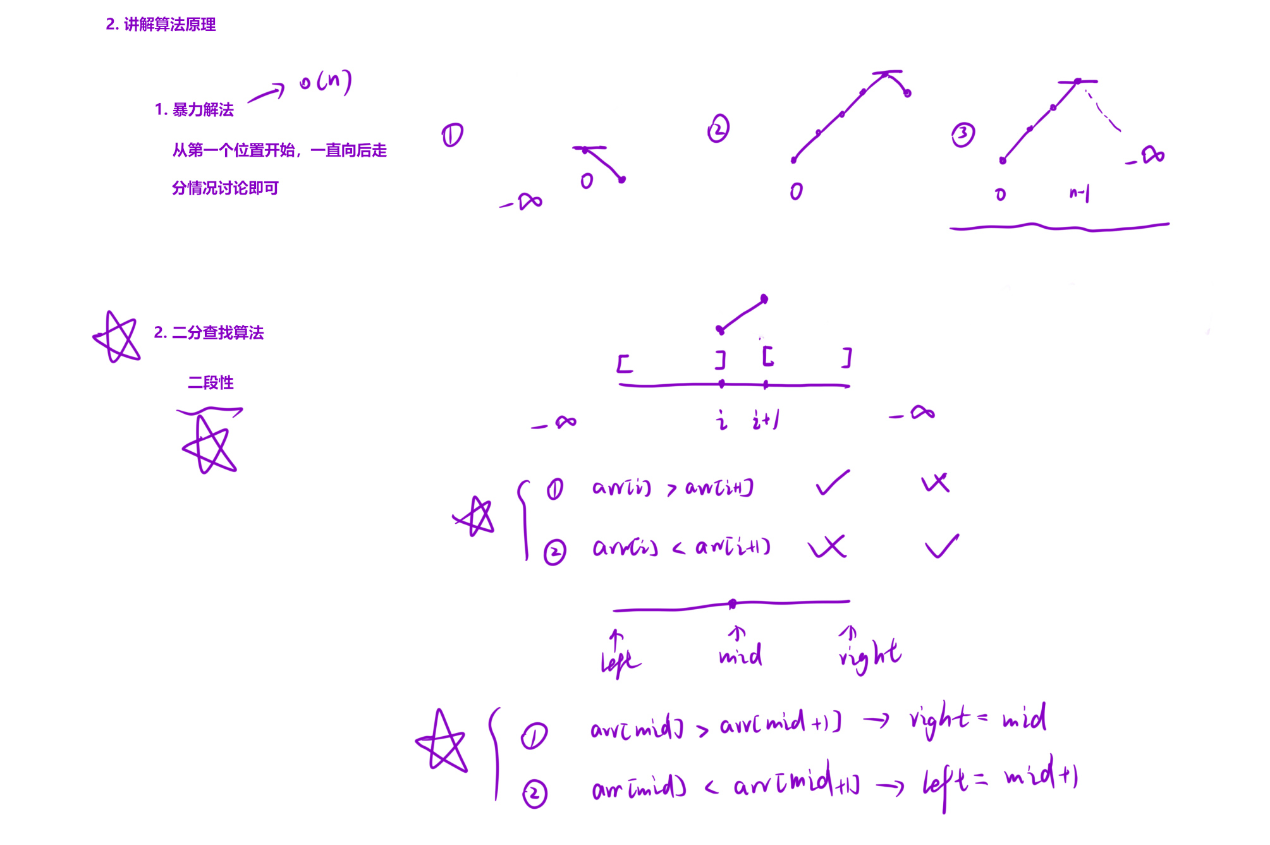 2. 讲解算法原理
o(n)
1. 暴力解法
从第一个位置开始，一直向后走
分情况讨论即可
① 0 -∞
② 0
③ 0 n-1 -∞
2. 二分查找算法
二段性
[ ] [ ]
-∞ i i+1 -∞
① arr[i] > arr[i+1] ✓ ×
② arr[i] < arr[i+1] × ✓
left mid right
① arr[mid] > arr[mid+1] → right = mid
② arr[mid] < arr[mid+1] → left = mid+1